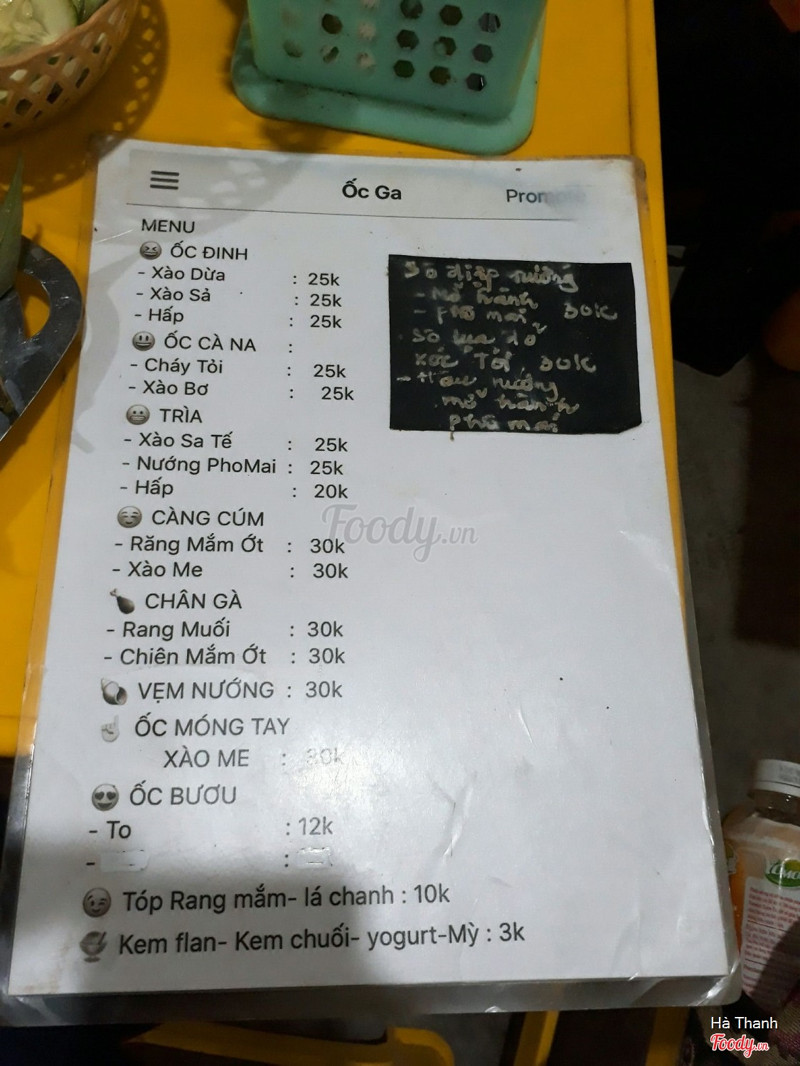 Ốc Ga
Prom
MENU
ỐC ĐINH
- Xào Dừa : 25k
- Xào Sả : 25k
- Hấp : 25k
ỐC CÀ NA :
- Cháy Tỏi : 25k
- Xào Bơ : 25k
TRÌA
- Xào Sa Tế : 25k
- Nướng PhoMai : 25k
- Hấp : 20k
CÀNG CÚM
- Răng Mắm Ớt : 30k
- Xào Me : 30k
CHÂN GÀ
- Rang Muối : 30k
- Chiên Mắm Ớt : 30k
VẸM NƯỚNG : 30k
ỐC MÓNG TAY
XÀO ME : 30k
ỐC BƯƠU
- To : 12k
- :
Tóp Rang mắm- lá chanh : 10k
Kem flan- Kem chuối- yogurt-Mỳ : 3k
Sò điệp nướng
- Mỡ hành
- Phô mai 30k
Sò lụa
xốc Tỏi 30k
- Hàu nướng
mỡ hành
phô mai
Foody.vn
Hà Thanh
Foody.vn